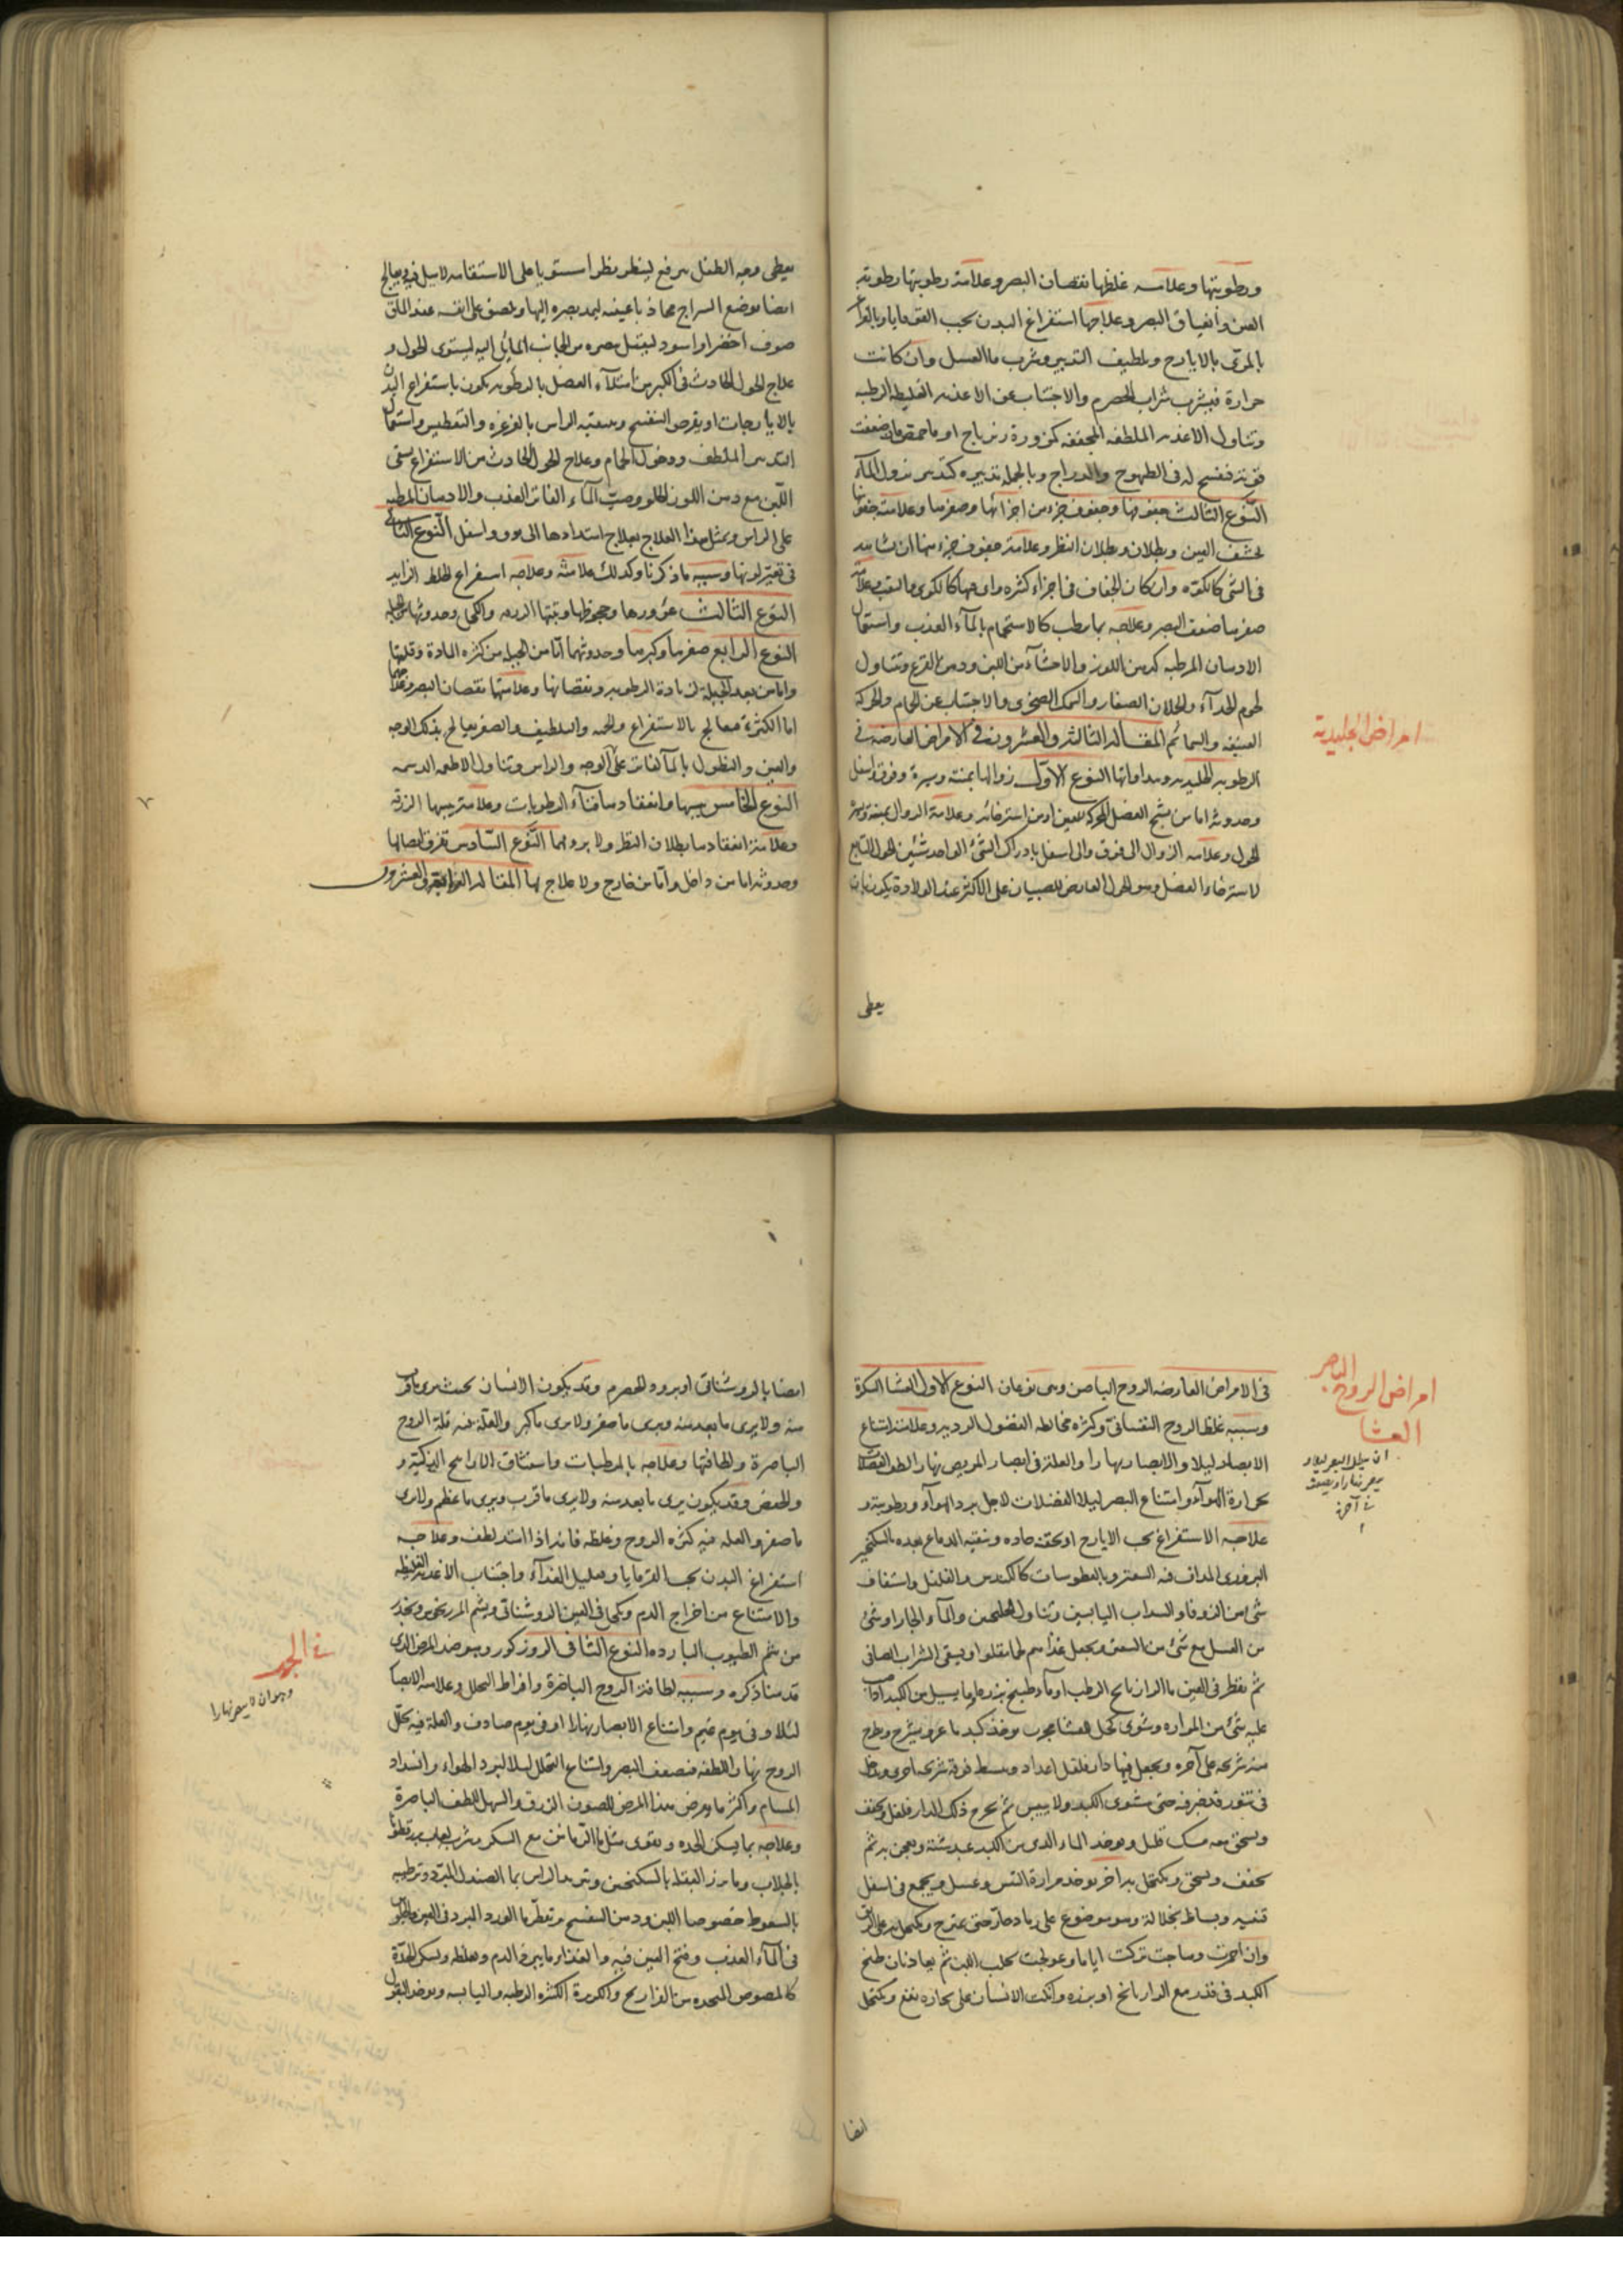 ورطوبتها وعلامة غلظها نقصان البصر وعلامة رطوبتها رطوبة
العين وانضياق البصر وعلاجها استفراغ البدن بحب القوقايا وبالغراغر
بالمري بالايارج وتلطيف التدبير وشرب ماء العسل وان كانت
حرارة فبشرب شراب الحصرم والاجتناب عن الاغذية الغليظة الرطبة
وتناول الاغذية الملطفة المجففة كمزورة زيرباج او ماء حمص فان ضعفت
قوته ففسح له في الطيهوج والدراج وبالجملة تدبيره كتدبير نزول الماء
النوع الثالث جفوفها وجفوف جزء من اجزائها وصغرها وعلامة جفوفها
تخشف العين وبطلان وبطلان النظر وعلامة جفوف جزء منها ان تشاهد
في الشي كالكوة وان كان الجفاف في اجزاء كثيرة راى فيها كالكوى والثقب وعلامة
صغرها ضعف البصر وعلاجه بما يرطب كالاستحمام بالماء العذب واستعمال
الادهان المرطبة كدهن اللوز والاحتشاء من اللبن ودهن القرع وتناول
لحوم الجداء والحملان الصغار والسمك الصخري والاجتناب عن الحمام والحركة
العنيفة والسمائم المقالة الثالثة والعشرون في الامراض العارضة في
الرطوبة الجليدية ومداواتها النوع الاول زوالها يمنة ويسرة وفوق واسفل
وحدوثه اما من تشنج العضل المحركة للعين او من استرخائه وعلامة الزوال يمنة ويسرة
الحول وعلامة الزوال الى فوق والى اسفل بادراك الشئ الواحد شيئين الحول التابع
لاسترخاء العضل وهو الحول العارض للصبيان على الاكثر عند الولادة يكون بان
يعطى
امراض الجليدية
يغطى وجه الطفل ببرقع لينظر نظرا مستويا على الاستقامة لا ميل فيه ويعالج
ايضا بوضع السراج محاذيا عينيه ليمد بصره اليها ويلصق على انفه عند الماق
صوف اخضر او اسود لينتقل بصره من الجانب المائل اليه ليستوى الحول و
علاج الحول الحادث في الكبر من امتلاء العضل بالرطوبة يكون باستفراغ البدن
بالايارجات او بقرص البنفسج وتنقية الراس بالغرغرة والتعطيس واستعمال
التدبير الملطف ودخول الحمام وعلاج الحول الحادث من الاستفراغ بسقى
اللبن مع دهن اللوز الحلو وصب الماء الفاتر العذب والادهان المرطبة
على الراس وبمثل هذا العلاج يعالج امتدادها الى فوق واسفل النوع الثاني
في تغير لونها وسببه ما ذكرنا وكذلك علامته وعلاجه استفراغ الخلط الزايد
النوع الثالث غؤورها وجحوظها ويتبعها الزرقة والكحل وحدوثها من الجبلة
النوع الرابع صغرها وكبرها وحدوثهما اما من الجبلة من كثرة المادة وقلتها
واما من بعد الجبلة لزيادة الرطوبة ونقصانها وعلامتها نقصان البصر وعلاجهما
اما الكثرة فيعالج بالاستفراغ والحمية والتلطيف والصغر يعالج بدلك الوجه
والعين والنطول بالماء الفاتر على الوجه والراس وتناول الاطعمة الدسمة
النوع الخامس يبسها وانعقادها فناء الرطوبات وعلامة يبسها الزرقة
وعلامة انعقادها بطلان النظر ولا برء لهما النوع السادس تفرق اتصالها
وحدوثه اما من داخل واما من خارج ولا علاج لها المقالة الرابعة والعشرون
في الامراض العارضة الروح الباصر وهي نوعان النوع الاول العشا السكرة
وسببه غلظ الروح النفساني وكثرة مخالطة الفضول الردية وعلامته امتناع
الابصار ليلا والابصار نهارا والعلة في ابصار المريض نهارا لطف الفضلات
بحرارة الهواء وامتناع البصر ليلا الفضلات لاجل برد الهواء ورطوبته و
علاجه الاستفراغ بحب الايارج او بحقنة حادة وتنقية الدماغ بعده بالسكنجبين
البزوري المداف فيه السعتر وبالعطوسات كالكندس والفلفل واستفاف
شئ من الزوفا والسداب اليابسين وتناول الجلنجبين والماء الحار او شئ
من العسل مع شئ من السعتر ويجعل غذاهم لحما مقلوا ويسقى الشراب الصافي
ثم يقطر في العين ماء الرازيانج الرطب او ماء طبيخ بزره او ما يسيل من الكبد
عليه شئ من المرارة وشوى كحل للعشا مجرب يوخذ كبد ماعز ويشرح ويطرح
منه شريحة على آجرة ويجعل فيها دارفلفل اعداد ويبسط فوقه شريحة اخرى
في تنور حتى تشوى الكبد ولا ييبس ثم يخرج ذلك الدارفلفل ويجفف
ويسحق معه مسك قليل ويوخذ الماء الذي من الكبد عند شيه ويعجن به ثم
يجفف ويسحق ويكتحل به اخر يوخذ مرارة التيس وعسل ويجمع في اسفل
قنينة ويساط بخلالة وهو موضوع على رماد حار حتى يمتزج ويكتحل به على الريق
وان احمرت وهاجت تركت اياما وعولجت بحلب اللبن ثم يعاد فان طبخ
الكبد في قدر مع الرازيانج او بزره وانكب الانسان على بخاره نفع ويكتحل
ايضا
امراض الروح الباصر
العشا
ايضا بالروشنائي او برود الحصرم وقد يكون الانسان بحيث يرى ما قرب
منه ولا يرى ما بعد منه ويرى ما صغر ولا يرى ما كبر والعلة فيه قلة الروح
الباصرة ولطافتها وعلاجه بالمرطبات واستنشاق الاراييح الزكية و
والخفض وقد يكون يرى ما بعد منه ولا يرى ما قرب ويرى ما عظم ولا يرى
ما صغر والعلة فيه كثرة الروح وغلظه فانه اذا امتد لطف وعلاجه
استفراغ البدن بحب القوقايا وتقليل الغذاء واجتناب الاغذية الغليظة
والامتناع من اخراج الدم ويكحل في العين الروشنائي ويشم المرزنجوش ويحذر
من شم الطيوب الباردة النوع الثاني الروزكور وهو ضد المرض الذي
قدمنا ذكره وسببه لطافة الروح الباصرة وافراط التحلل وعلامته الابصار
ليلا وفي يوم غيم وامتناع الابصار نهارا او في يوم صاف والعلة فيه تحلل
الروح نهارا للطفه فضعف البصر وامتناع التحلل ليلا لبرد الهواء وانسداد
المسام واكثر ما يعرض هذا المرض للعيون الزرق والشهل للطف الباصرة
وعلاجه بما يسكن الحدة ويقوى مثل ماء الرمانين مع السكر وشرب لعاب بزرقطونا
بالجلاب وماء بزر البقلة بالسكنجبين وتبريد الراس بماء الصندل المبرد وترطيبه
بالسعوط خصوصا اللبن ودهن البنفسج وتقطير ماء الورد المبرد في العين
في الماء العذب وفتح العين فيه والغذاء ما يبرد الدم ويغلظه ويسكن الحدة
كالمصوص المتخذة من الفراريج والكزبرة الكثيرة الرطبة واليابسة ويوخذ البقول
في الجهر
وهو ان لا يبصر نهارا